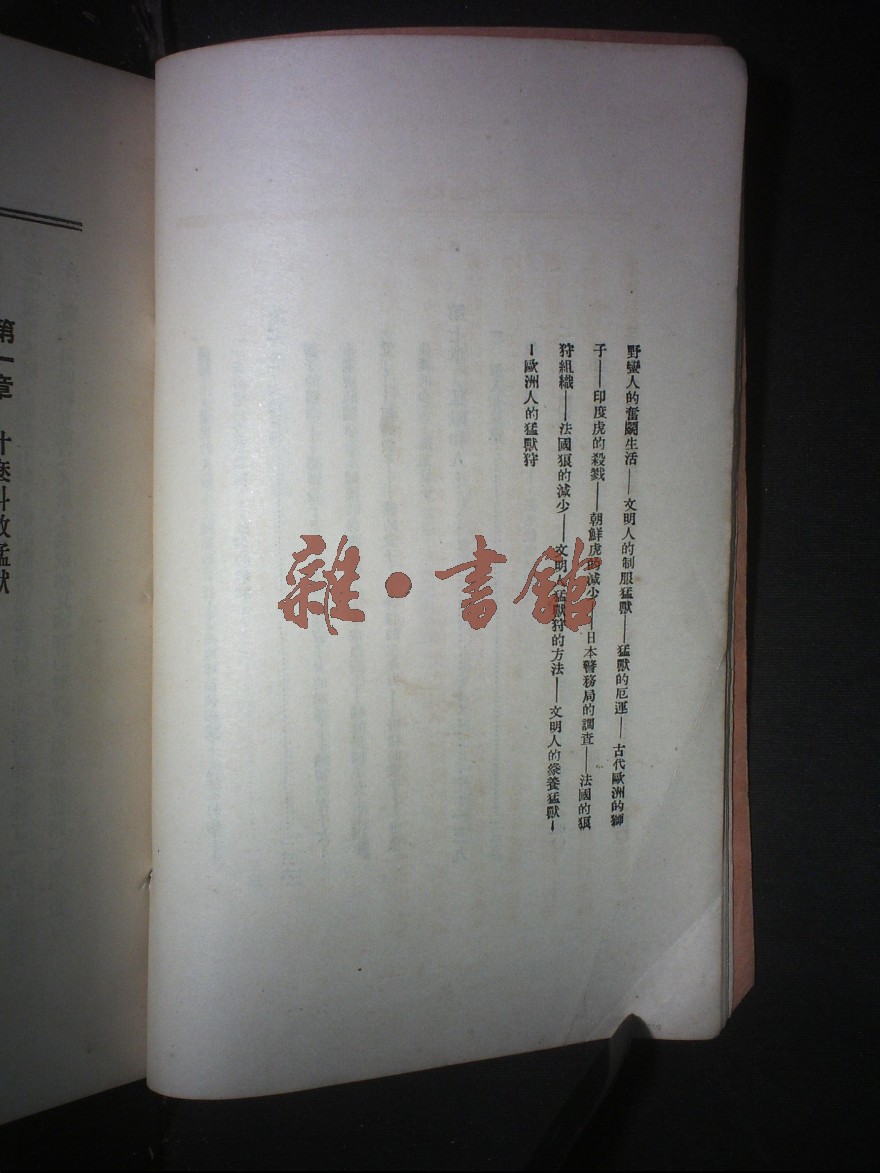 野蠻人的奮鬭生活——文明人的制服猛獸——猛獸的厄運——古代歐洲的獅
子——印度虎的殺戮——朝鮮虎的減少——日本警務局的調査——法國的狼
狩組織——法國狼的減少——文明人猛獸狩的方法——文明人的豢養猛獸—
—歐洲人的猛獸狩
第一章 什麽叫做猛獸
雜·書館